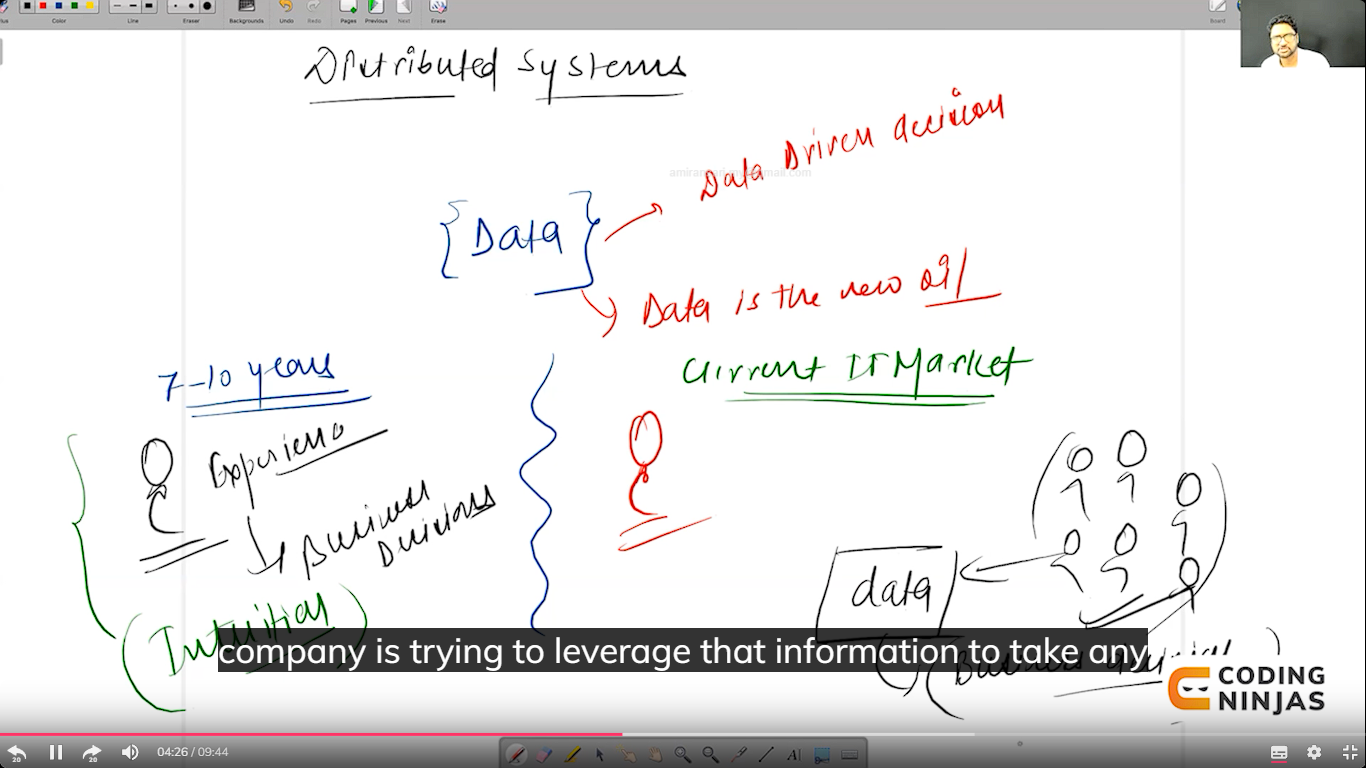 Color
Line
Eraser
Backgrounds
Undo
Redo
Pages
Previous
Next
Erase
Board
Distributed Systems
Data Driven decision
{Data}
Data is the new oil
7-10 years
Current IT Market
Experience
Business
Decisions
data
(Intuition)
company is trying to leverage that information to take any
Business
CODING
NINJAS
20
20
04:26 / 09:44